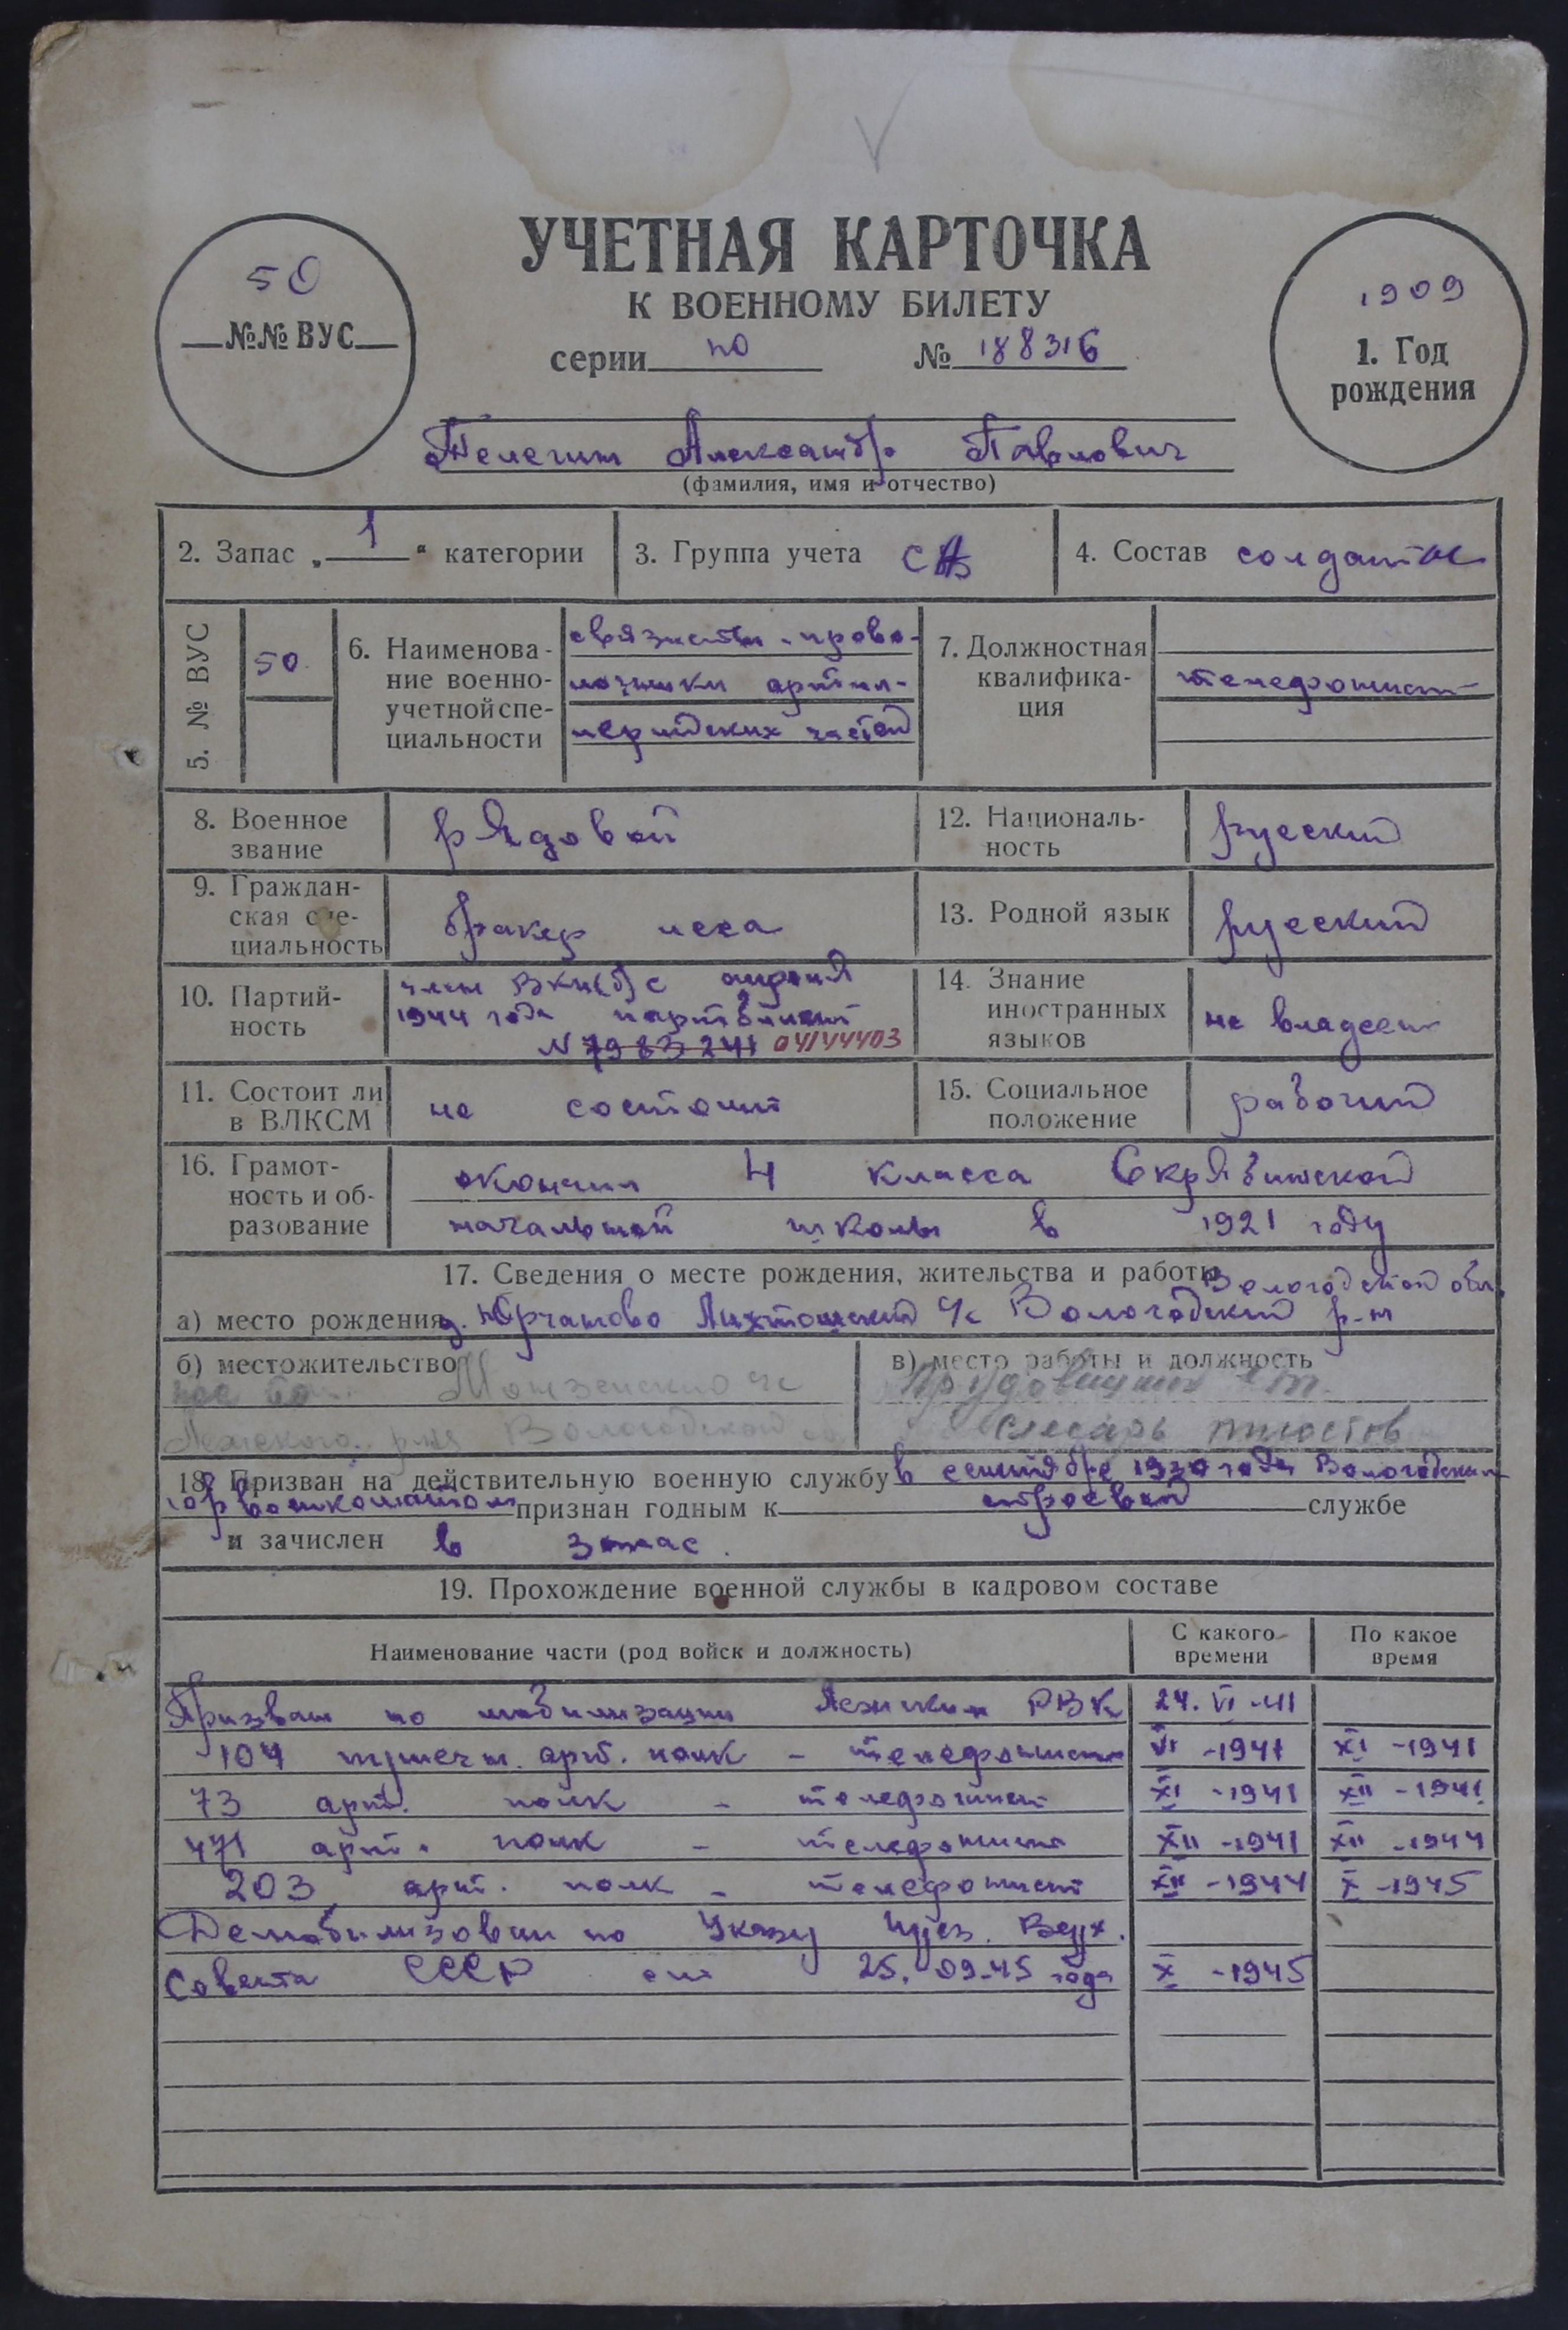 УЧЕТНАЯ КАРТОЧКА
К ВОЕННОМУ БИЛЕТУ
серии по № 188316
50
№№ ВУС
1909
1. Год рождения
Телегин Александр Павлович
(фамилия, имя и отчество)
2. Запас „ 1 “ категории
3. Группа учета СА
4. Состав солдаты
5. № ВУС
50
6. Наименова-
ние военно-
учетной спе-
циальности
связисты-прово-
лочники артил-
лерийских частей
7. Должностная
квалифика-
ция
телефонист
8. Военное
звание
рядовой
12. Националь-
ность
русский
9. Граждан-
ская спе-
циальность
бракер леса
13. Родной язык
русский
10. Партий-
ность
член ВКП(б) с апреля
1944 года партбилет
N 7983241 04144403
14. Знание
иностранных
языков
не владеет
11. Состоит ли
в ВЛКСМ
не состоит
15. Социальное
положение
рабочий
16. Грамот-
ность и об-
разование
окончил 4 класса Скрябинской
начальной школы в 1921 году
17. Сведения о месте рождения, жительства и работы
Вологодской обл.
а) место рождения д. Юрчаково Лихтошский с/с Вологодский р-н
б) местожительство
Монзенского с/с
р-на Вологодской
в) место работы и должность
слесарь
18. Призван на действительную военную службу в сентябре 1930 года Вологодским
горвоенкоматом признан годным к строевой службе
и зачислен в запас.
19. Прохождение военной службы в кадровом составе
Наименование части (род войск и должность)
С какого времени
По какое время
Призван по мобилизации Лежским РВК 24. VI -41
104 пушечн. арт. полк - телефонист VI -1941 XI -1941
73 арт. полк - телефонист XI -1941 XII -1941
471 арт. полк - телефонист XII -1941 XII -1944
203 арт. полк - телефонист XII -1944 X -1945
Демобилизован по Указу През. Верх.
Совета СССР от 25.09.45 года X -1945